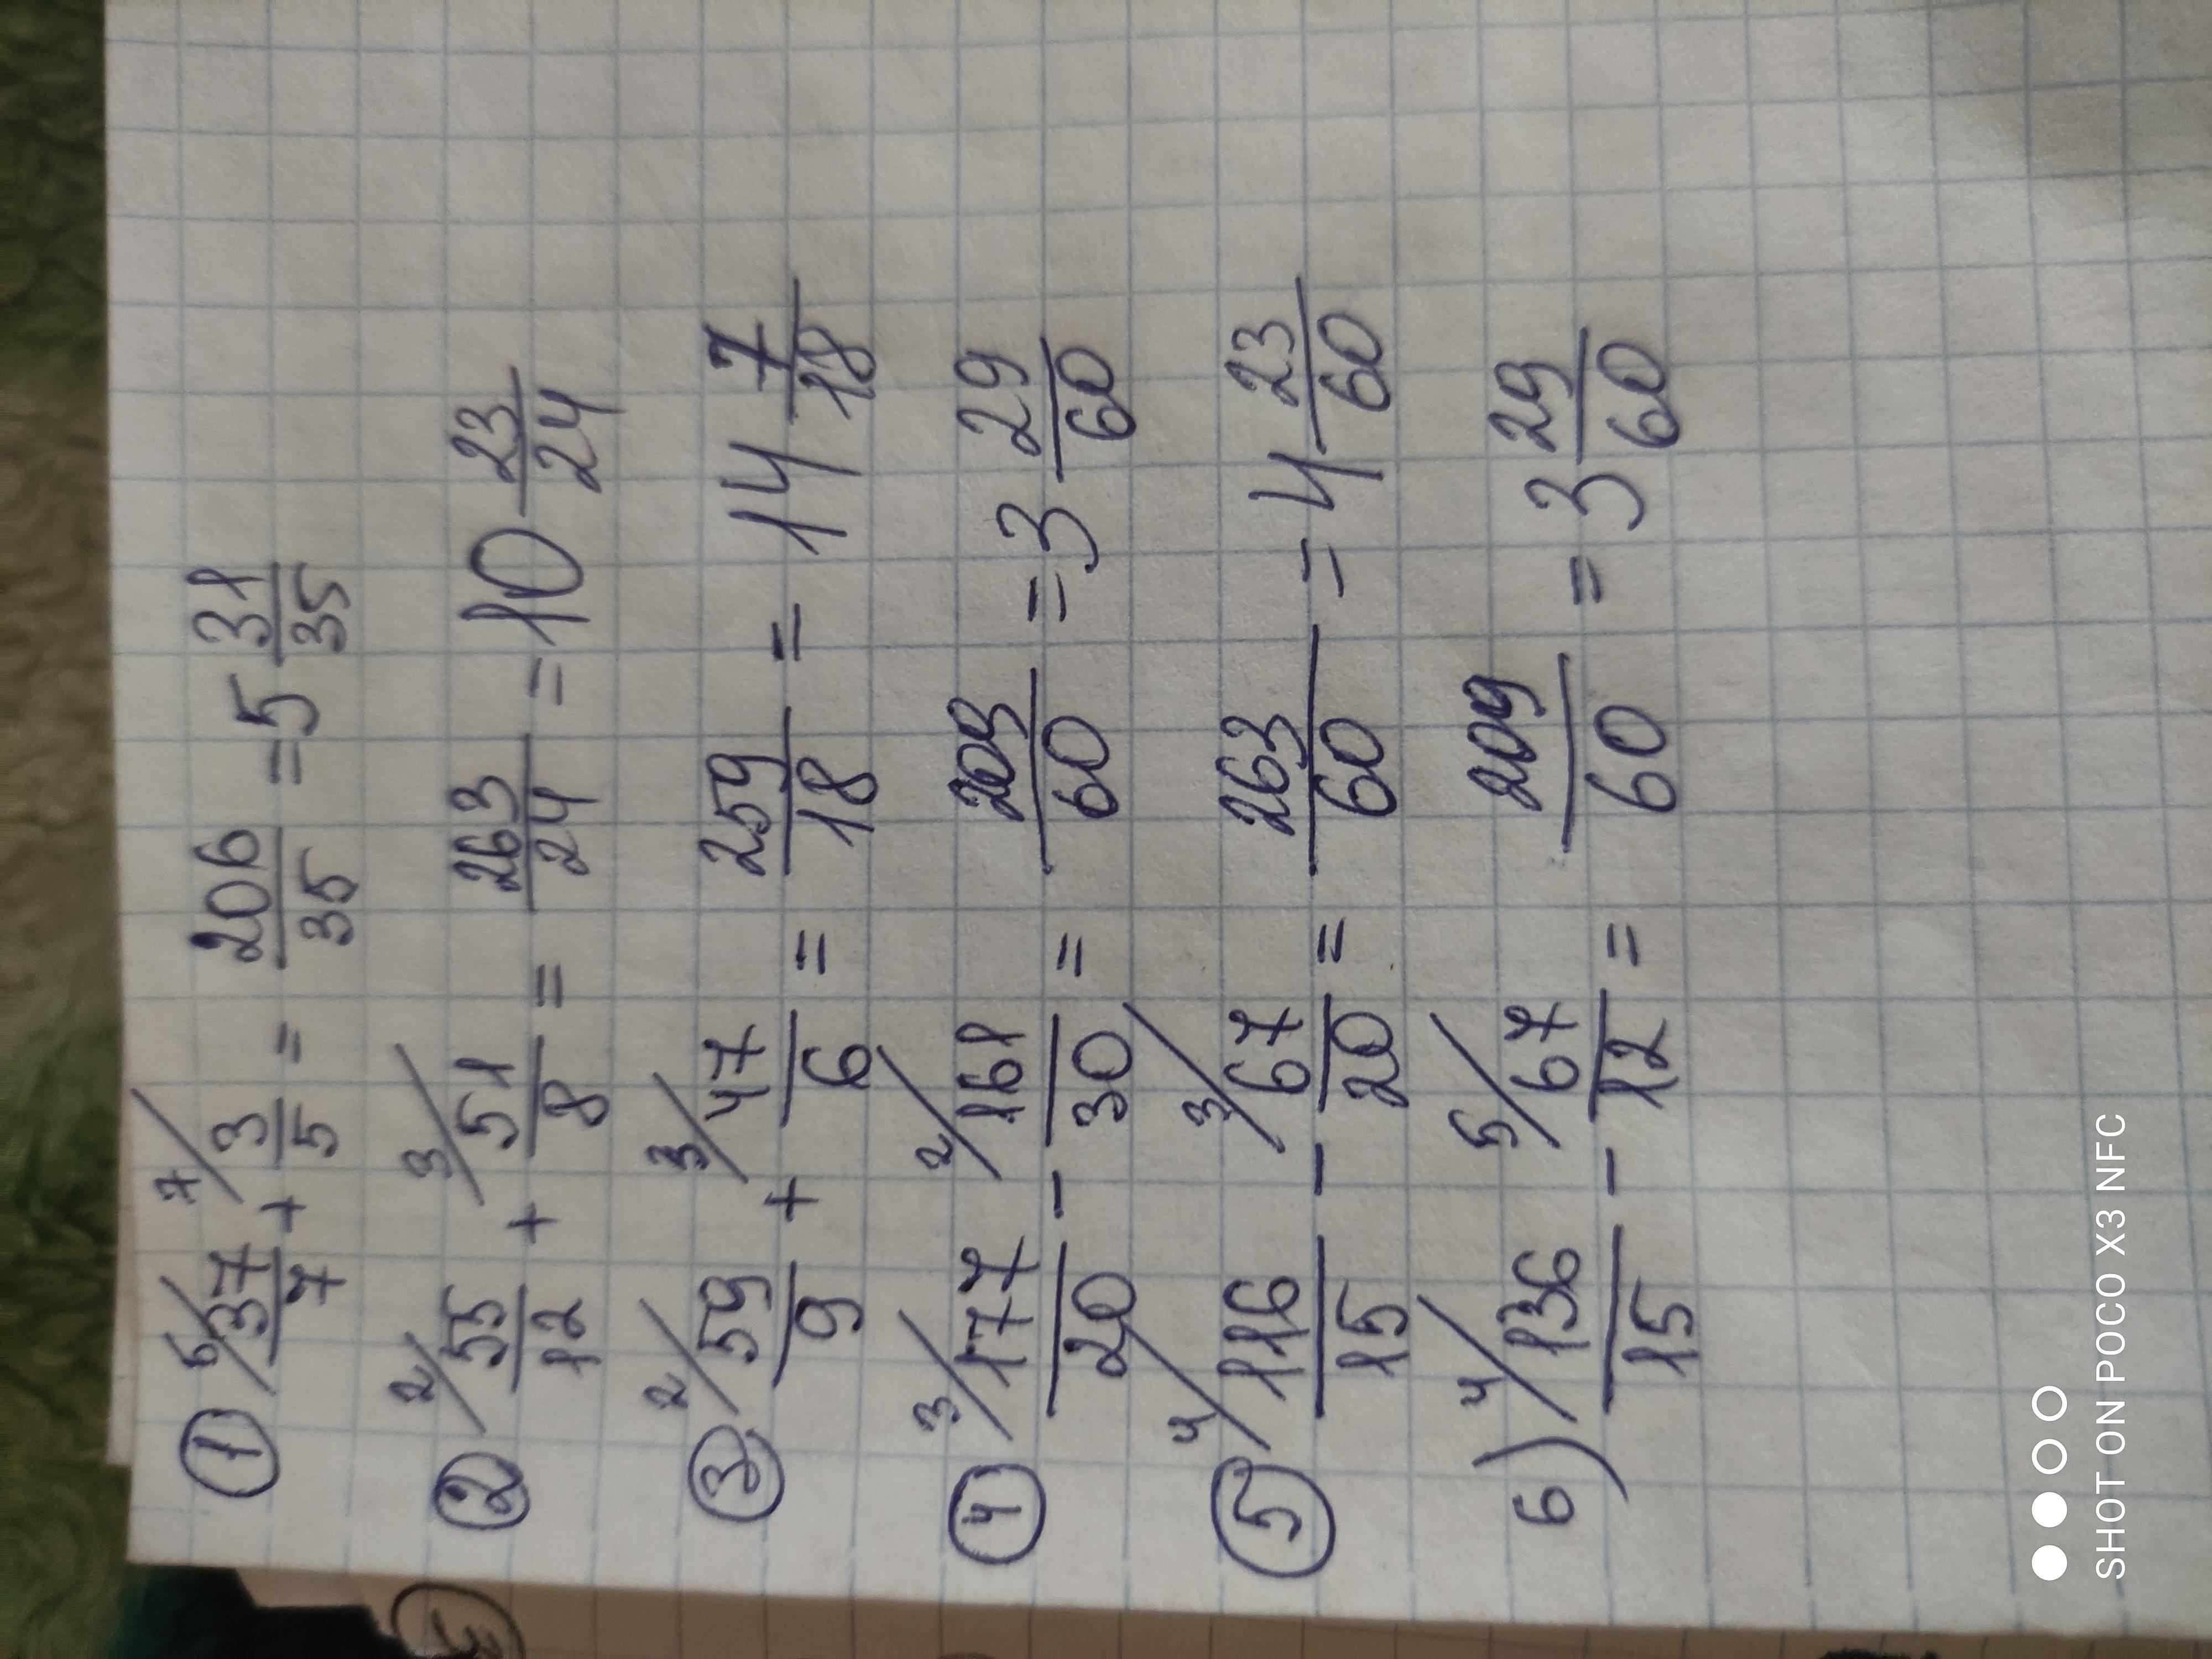 ① 5/ 37/7 + 7/ 3/5 = 206/35 = 5 31/35
② 2/ 55/12 + 3/ 51/8 = 263/24 = 10 23/24
③ 2/ 59/9 + 3/ 47/6 = 259/18 = 14 7/18
④ 3/ 177/20 - 2/ 161/30 = 209/60 = 3 29/60
⑤ 4/ 116/15 - 3/ 67/20 = 263/60 = 4 23/60
6) 4/ 136/15 - 5/ 67/12 = 209/60 = 3 29/60
SHOT ON POCO X3 NFC